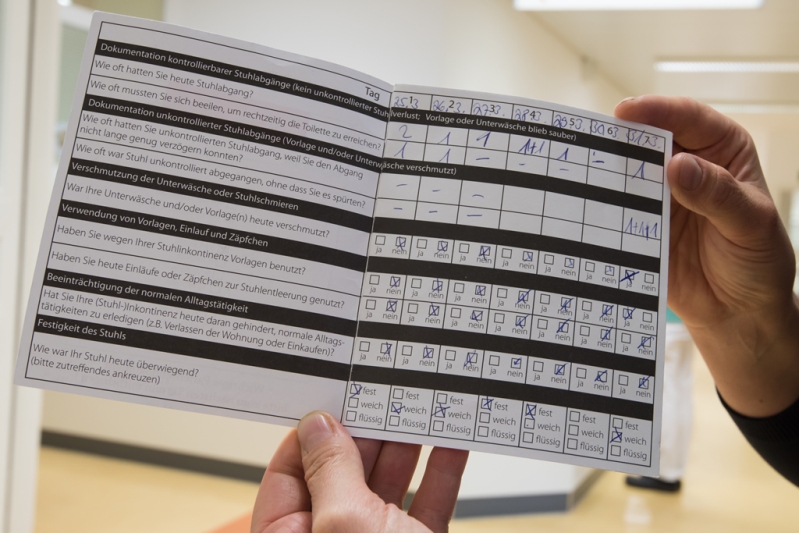 Tag 1 2 3 4 5 6 7
25.3. 26.3. 27.3. 28.3. 29.3. 30.3. 31.3.
Dokumentation kontrollierbarer Stuhlabgänge (kein unkontrollierter Stuhlverlust: Vorlage oder Unterwäsche blieb sauber)
Wie oft hatten Sie heute Stuhlgang? 2 1 1 1+1 1 – 1
Wie oft mussten Sie sich beeilen, um rechtzeitig die Toilette zu erreichen? 1 1 – – –
Dokumentation unkontrollierter Stuhlabgänge (Vorlage und/oder Unterwäsche verschmutzt)
Wie oft hatten Sie unkontrollierten Stuhlgang, weil Sie den Abgang
nicht lange genug verzögern konnten? – – –
Wie oft war Stuhl unkontrolliert abgegangen, ohne dass Sie es spürten? – – – 1+1+1
Verschmutzung der Unterwäsche oder Stuhlschmieren
War Ihre Unterwäsche und/oder Vorlage(n) heute verschmutzt?
ja nein ja nein ja nein ja nein ja nein ja nein ja nein
Verwendung von Vorlagen, Einlauf und Zäpfchen
Haben Sie wegen Ihrer Stuhlinkontinenz Vorlagen benutzt?
ja nein ja nein ja nein ja nein ja nein ja nein ja nein
Haben Sie heute Einläufe oder Zäpfchen zur Stuhlentleerung genutzt?
ja nein ja nein ja nein ja nein ja nein ja nein ja nein
Beeinträchtigung der normalen Alltagstätigkeit
Hat Sie Ihre (Stuhl-)Inkontinenz heute daran gehindert, normale Alltags-
tätigkeiten zu erledigen (z.B. Verlassen der Wohnung oder Einkaufen)?
ja nein ja nein ja nein ja nein ja nein ja nein ja nein
Festigkeit des Stuhls
Wie war Ihr Stuhl heute überwiegend?
(bitte zutreffendes ankreuzen)
fest fest fest fest fest fest fest
weich weich weich weich weich weich weich
flüssig flüssig flüssig flüssig flüssig flüssig flüssig